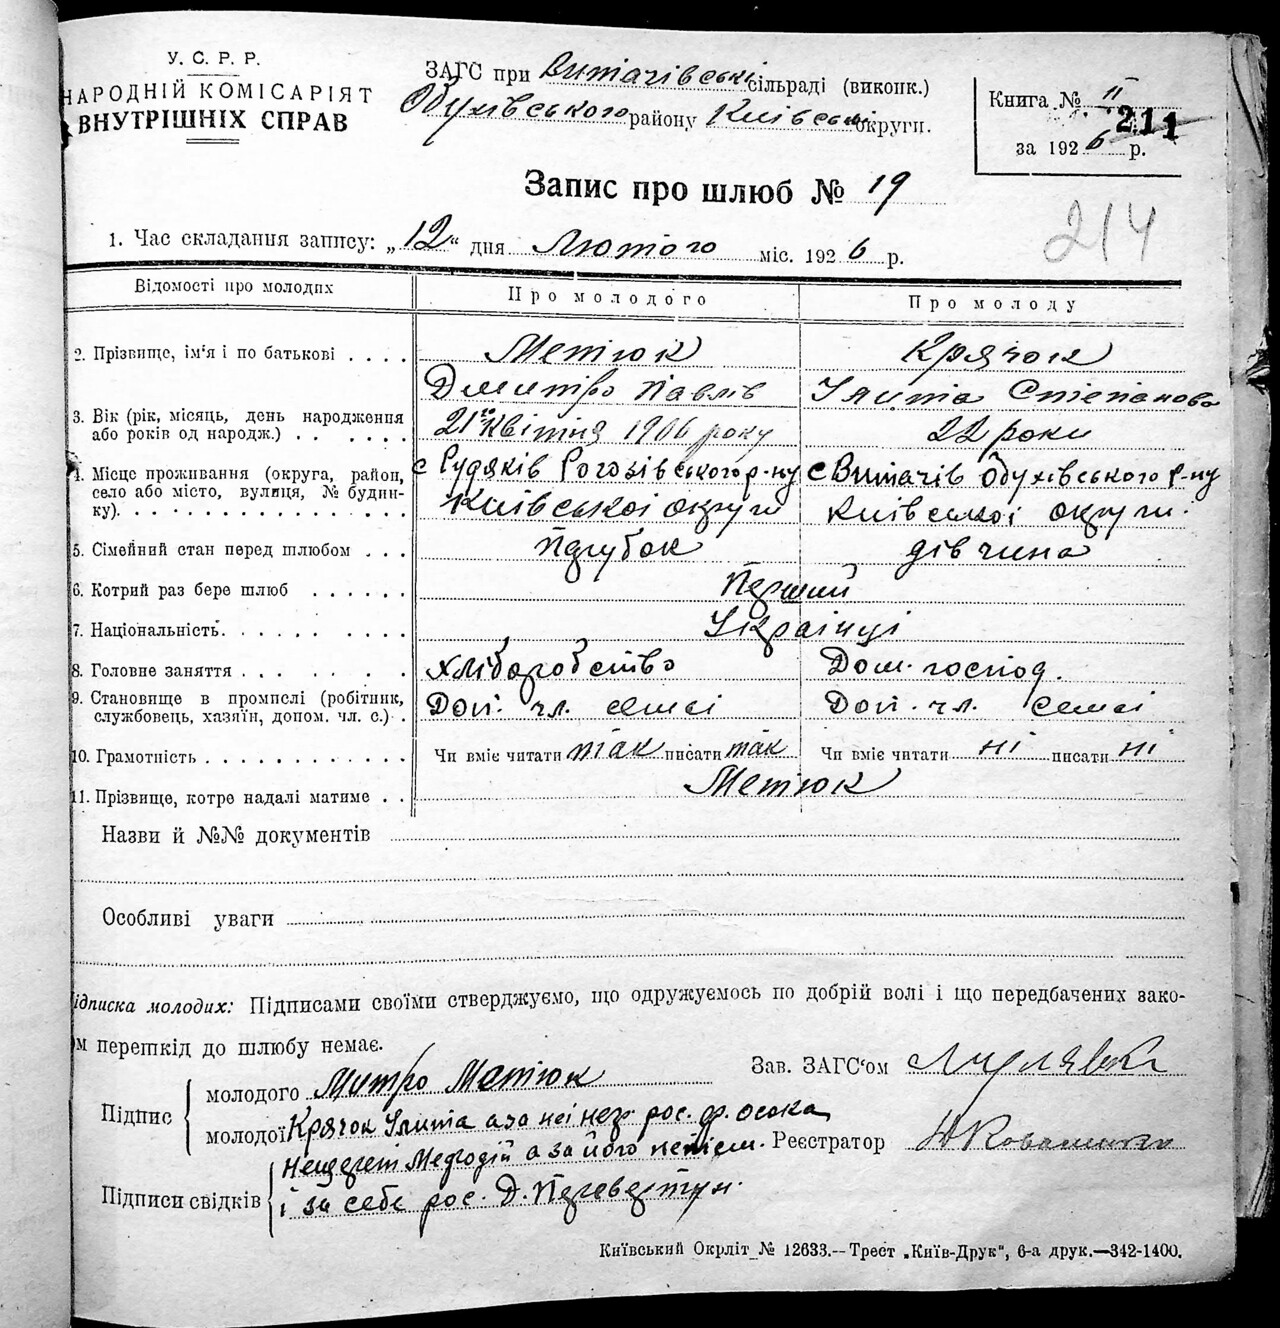 У. С. Р. Р.
НАРОДНІЙ КОМІСАРІЯТ
ВНУТРІШНІХ СПРАВ
ЗАГС при Витачівські сільраді (виконк.)
Обухівського району Київської округи.
Книга № II
211
за 1926 р.
Запис про шлюб № 19
214
1. Час складання запису: „12" дня Лютого міс. 1926 р.
Відомості про молодих
Про молодого
Про молоду
2. Прізвище, ім'я і по батькові . . . .
Метіюк
Крячок
Дмитро Павлів
Улита Степанова
3. Вік (рік, місяць, день народження
або років од народж.) . . . . . .
21го квітня 1906 року
22 роки
4. Місце проживання (округа, район,
село або місто, вулиця, № будин-
ку). . . . . . . . . . . . . . . .
с Рудяків Рогозівського р-ну
с Витачів Обухівського р-ну
Київської округи
Київської округи.
5. Сімейний стан перед шлюбом . . .
Парубок
дівчина
6. Котрий раз бере шлюб . . . . . .
Перший
7. Національність. . . . . . . . . .
Українці
8. Головне заняття . . . . . . . .
Хліборобство
Дом. господ.
9. Становище в промислі (робітник,
службовець, хазяїн, допом. чл. с.) .
Доп. чл. семєї
Доп. чл. семєї
10. Грамотність . . . . . . . . . . . .
Чи вміє читати так писати так
Чи вміє читати ні писати ні
11. Прізвище, котре надалі матиме . .
Метіюк
Назви й №№ документів
Особливі уваги
ідписка молодих: Підписами своїми стверджуємо, що одружуємось по добрій волі і що передбачених зако-
м перешкід до шлюбу немає.
Підпис
молодого Митро Метіюк
Зав. ЗАГС'ом
молодої Крячок Улита а за неї нез. рос. ф. осока
Реєстратор
Підписи свідків
а за його
і за себе рос. Д. Перевертун.
Київський Окрліт № 12633.—Трест „Київ-Друк", 6-а друк.—342-1400.